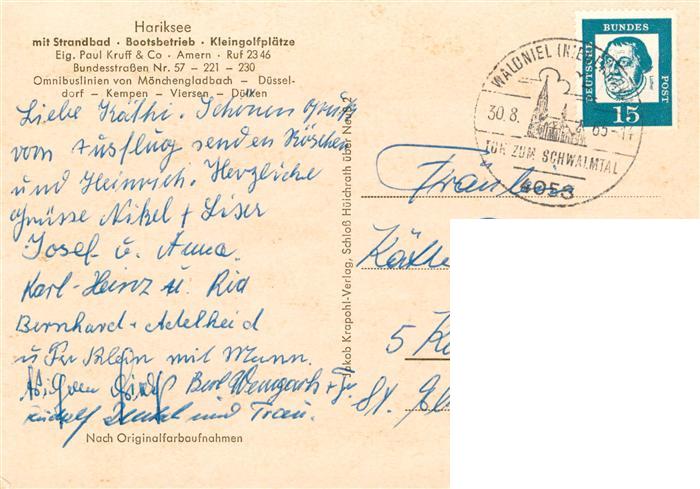 Hariksee
mit Strandbad · Bootsbetrieb · Kleingolfplätze
Eig. Paul Kruff & Co · Amern · Ruf 23 46
Bundesstraßen Nr. 57 – 221 – 230
Omnibuslinien von Mönchengladbach – Düssel-
dorf – Kempen – Viersen – Dülken
Liebe Käthi. Schönen Gruß
vom Ausflug senden Röschen
und Heinrich. Herzliche
Grüsse Nikel + Liser
Josef u. Anna.
Karl-Heinz u. Ria
Bernhard + Adelheid
u Fr Klein mit Mann.
Berl Wengark + Fr.
Rudolf und Frau.
Nach Originalfarbaufnahmen
Jakob Krapohl-Verlag, Schloß Hülchrath über Neuß 2
DEUTSCHE BUNDES POST
15
WALDNIEL (NIE
30.8. 65-17
TOR ZUM SCHWALMTAL
4053
Fräulein
Käthe
5 K
St.